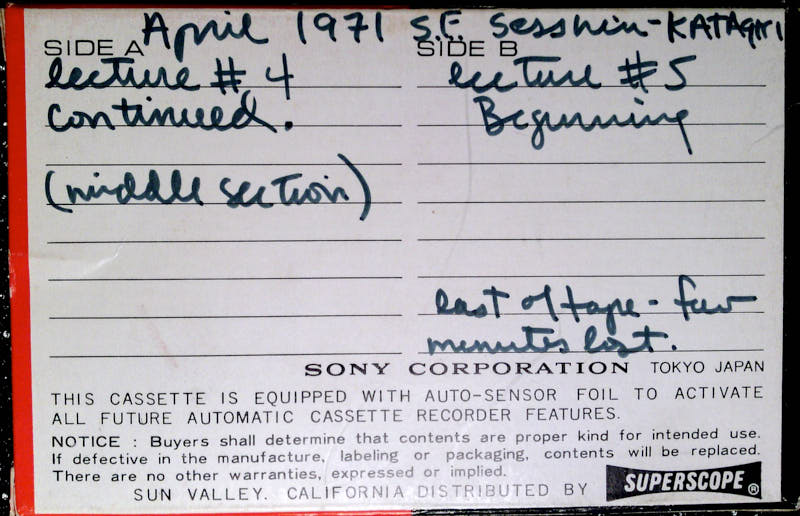 April 1971 S.F. Sesshin-KATAgiri
SIDE A
SIDE B
lecture #4
continued.
(middle section)
lecture #5
Beginning
last of tape - few
minutes lost.
SONY CORPORATION TOKYO JAPAN
THIS CASSETTE IS EQUIPPED WITH AUTO-SENSOR FOIL TO ACTIVATE
ALL FUTURE AUTOMATIC CASSETTE RECORDER FEATURES.
NOTICE : Buyers shall determine that contents are proper kind for intended use.
If defective in the manufacture, labeling or packaging, contents will be replaced.
There are no other warranties, expressed or implied.
SUN VALLEY. CALIFORNIA DISTRIBUTED BY SUPERSCOPE®